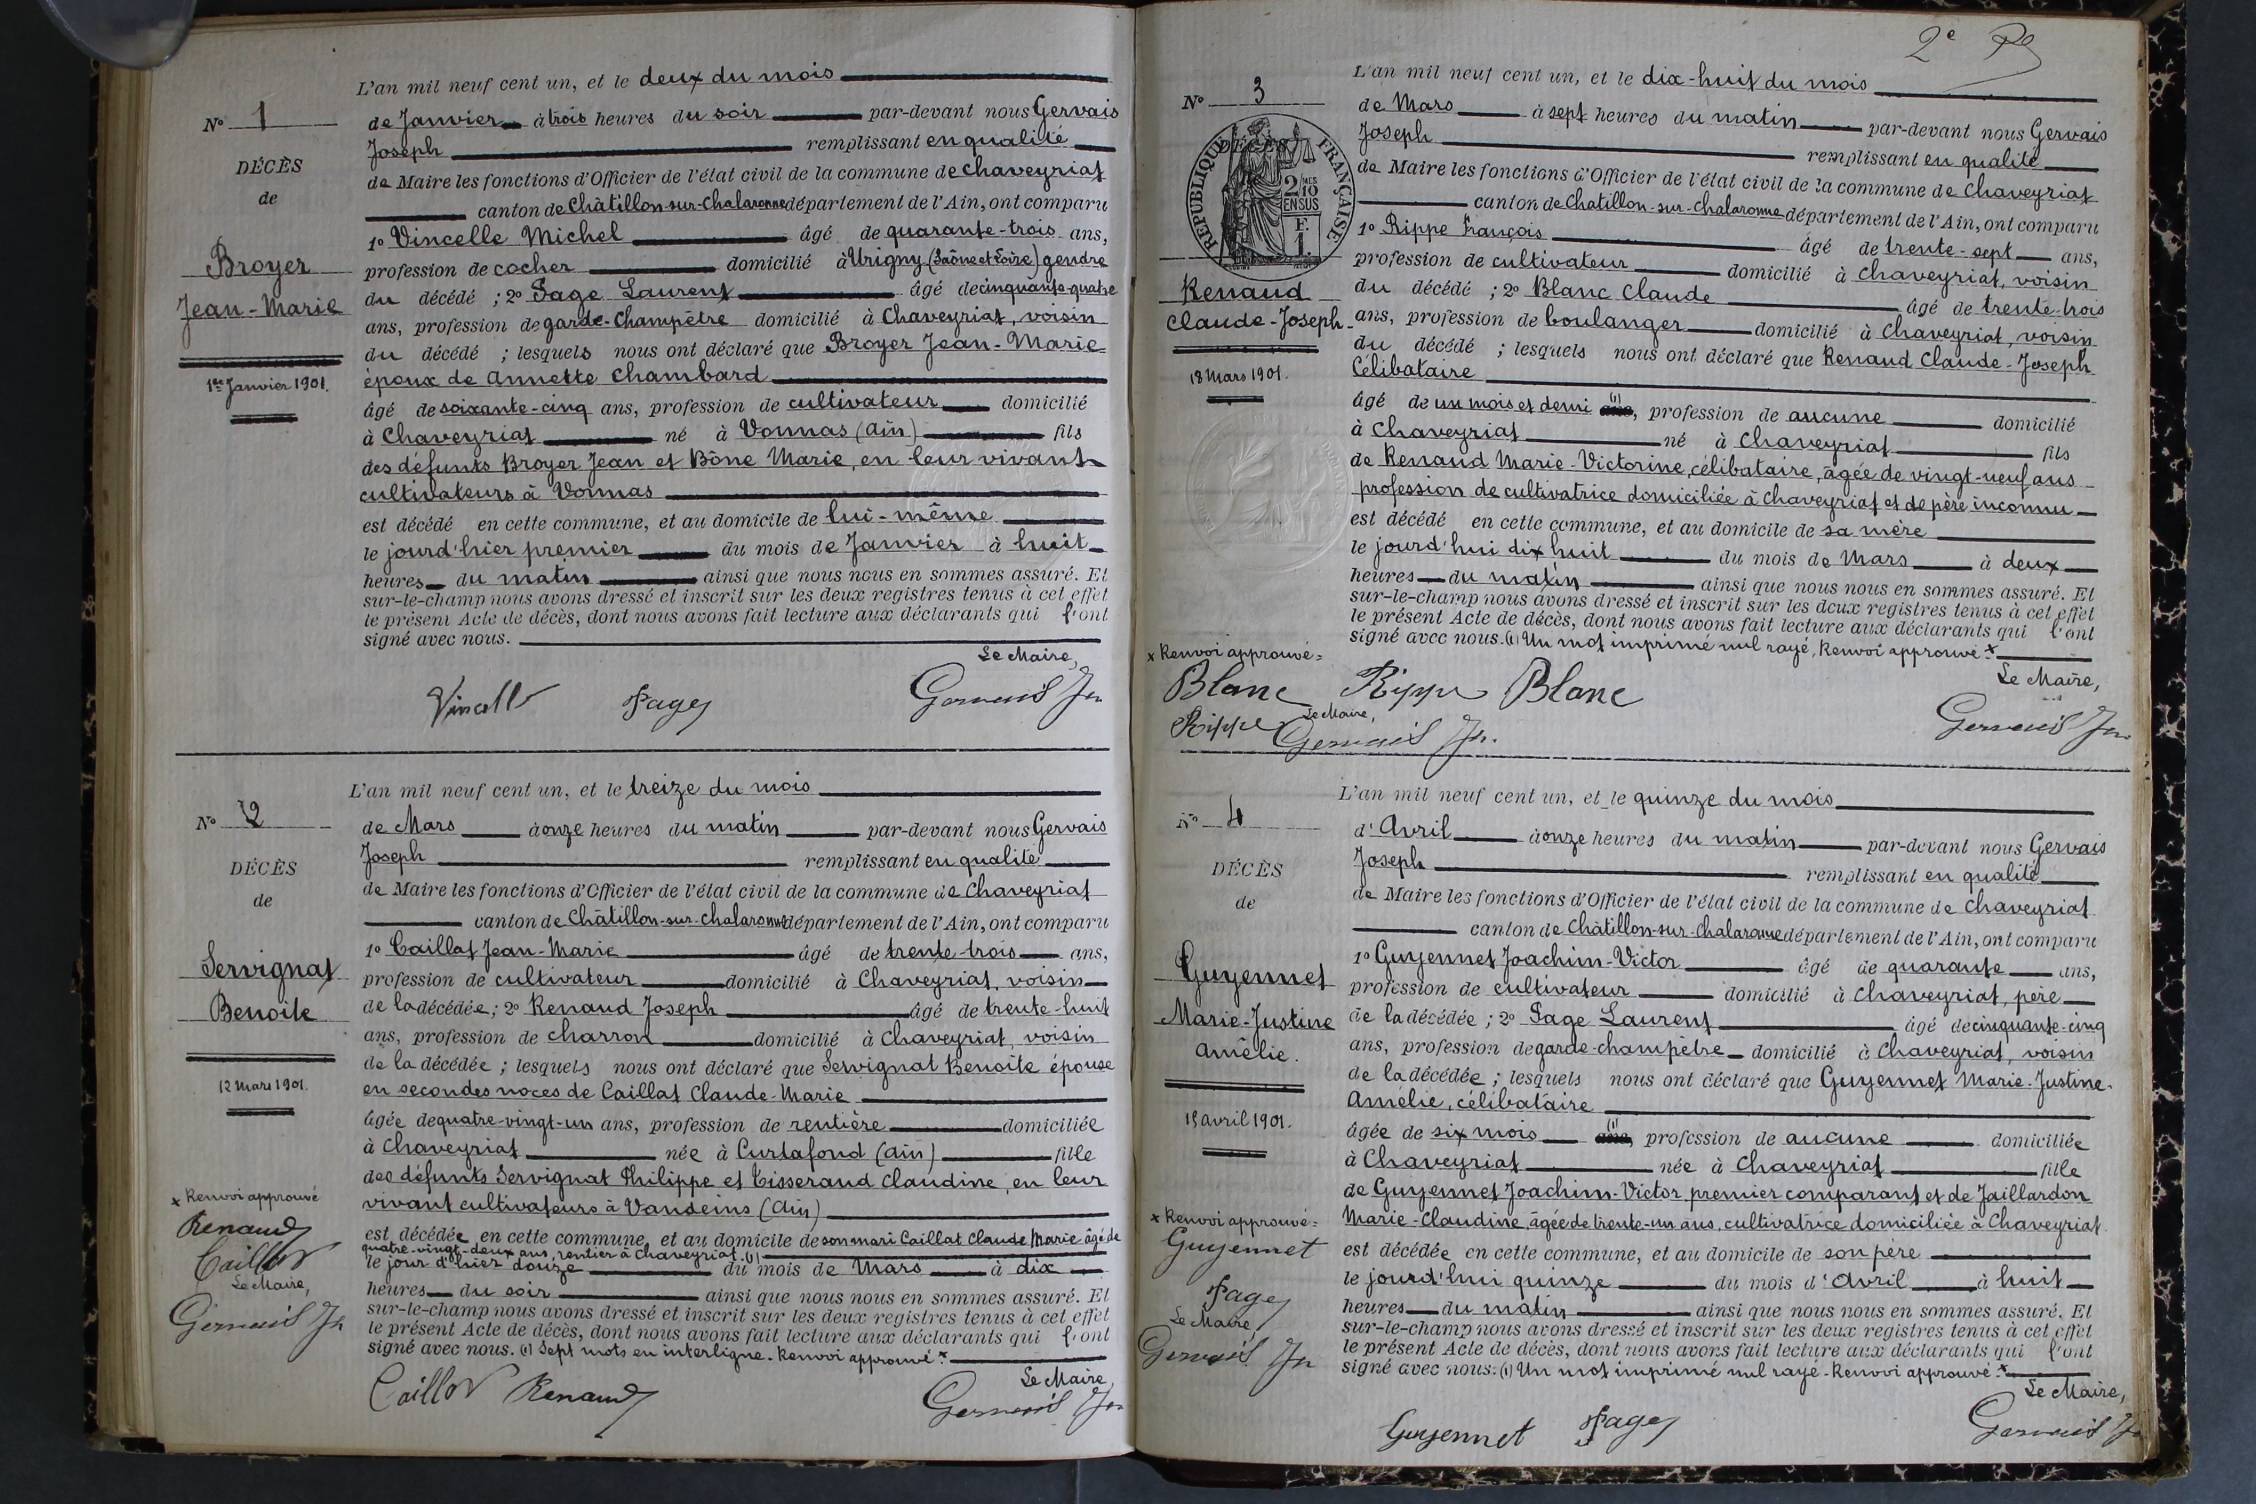 L'an mil neuf cent un, et le deux du mois
No 1
de Janvier à trois heures du soir par-devant nous Gervais
Joseph remplissant en qualité
DÉCÈS
de Maire les fonctions d'Officier de l'état civil de la commune de Chaveyriat
de
canton de Châtillon-sur-Chalaronne département de l'Ain, ont comparu
1o Vincelle Michel âgé de quarante-trois ans,
Broyer
profession de cocher domicilié à Urigny (Saône et Loire) gendre
Jean-Marie
du décédé ; 2o Page Laurent âgé de cinquante-quatre
ans, profession de garde-champêtre domicilié à Chaveyriat, voisin
du décédé ; lesquels nous ont déclaré que Broyer Jean-Marie
1er Janvier 1901.
époux de Annette Chambard
âgé de soixante-cinq ans, profession de cultivateur domicilié
à Chaveyriat né à Vonnas (Ain) fils
des défunts Broyer Jean et Bône Marie, en leur vivant
cultivateurs à Vonnas
est décédé en cette commune, et au domicile de lui-même
le jourd'hier premier du mois de Janvier à huit
heures du matin ainsi que nous nous en sommes assuré. Et
sur-le-champ nous avons dressé et inscrit sur les deux registres tenus à cet effet
le présent Acte de décès, dont nous avons fait lecture aux déclarants qui l'ont
signé avec nous.
Le Maire,
Vincelle Page Gervais Jh
L'an mil neuf cent un, et le treize du mois
No 2
de Mars à onze heures du matin par-devant nous Gervais
Joseph remplissant en qualité
DÉCÈS
de Maire les fonctions d'Officier de l'état civil de la commune de Chaveyriat
de
canton de Châtillon-sur-Chalaronne département de l'Ain, ont comparu
1o Caillat Jean-Marie âgé de trente-trois ans,
Servignat
profession de cultivateur domicilié à Chaveyriat, voisin
Benoite
de la décédée ; 2o Renaud Joseph âgé de trente-huit
ans, profession de charron domicilié à Chaveyriat, voisin
de la décédée ; lesquels nous ont déclaré que Servignat Benoite épouse
12 Mars 1901.
en secondes noces de Caillat Claude-Marie
âgée de quatre-vingt-un ans, profession de rentière domiciliée
à Chaveyriat née à Curtafond (Ain) fille
des défunts Servignat Philippe et Tisserand Claudine, en leur
vivant cultivateurs à Vandeins (Ain)
est décédée en cette commune, et au domicile de son mari Caillat Claude Marie âgé de
quatre-vingt-deux ans, rentier à Chaveyriat (1)
le jour d'hier douze du mois de Mars à dix
heures du soir ainsi que nous nous en sommes assuré. Et
sur-le-champ nous avons dressé et inscrit sur les deux registres tenus à cet effet
le présent Acte de décès, dont nous avons fait lecture aux déclarants qui l'ont
signé avec nous. (1) Sept mots en interligne. Renvoi approuvé. x
x Renvoi approuvé
Renaud
Caillat
Le Maire,
Gervais Jh
Le Maire,
Caillat Renaud Gervais Jh
2e
L'an mil neuf cent un, et le dix-huit du mois
No 3
de Mars à sept heures du matin par-devant nous Gervais
Joseph remplissant en qualité
DÉCÈS
RÉPUBLIQUE FRANÇAISE
2/10 MES EN SUS
F. 1.
de Maire les fonctions d'Officier de l'état civil de la commune de Chaveyriat
canton de Châtillon-sur-Chalaronne département de l'Ain, ont comparu
1o Rippe François âgé de trente-sept ans,
profession de cultivateur domicilié à Chaveyriat, voisin
Renaud
du décédé ; 2o Blanc Claude âgé de trente-trois
Claude-Joseph
ans, profession de boulanger domicilié à Chaveyriat, voisin
du décédé ; lesquels nous ont déclaré que Renaud Claude-Joseph
18 Mars 1901.
Célibataire
âgé de un mois et demi (1) ans, profession de aucune domicilié
à Chaveyriat né à Chaveyriat fils
de Renaud Marie-Victorine, célibataire, âgée de vingt-neuf ans
profession de cultivatrice domiciliée à Chaveyriat et de père inconnu
est décédé en cette commune, et au domicile de sa mère
le jourd'hui dix huit du mois de Mars à deux
heures du matin ainsi que nous nous en sommes assuré. Et
sur-le-champ nous avons dressé et inscrit sur les deux registres tenus à cet effet
le présent Acte de décès, dont nous avons fait lecture aux déclarants qui l'ont
signé avec nous. (1) Un mot imprimé nul rayé, Renvoi approuvé. x
x Renvoi approuvé =
Le Maire,
Blanc Rippe Blanc
Rippe Le Maire, Gervais Jh. Gervais Jh
L'an mil neuf cent un, et le quinze du mois
No 4
d'Avril à onze heures du matin par-devant nous Gervais
Joseph remplissant en qualité
DÉCÈS
de Maire les fonctions d'Officier de l'état civil de la commune de Chaveyriat
de
canton de Châtillon-sur-Chalaronne département de l'Ain, ont comparu
1o Guyennet Joachim-Victor âgé de quarante ans,
Guyennet
profession de cultivateur domicilié à Chaveyriat, père
Marie-Justine
de la décédée ; 2o Page Laurent âgé de cinquante-cinq
Amélie.
ans, profession de garde-champêtre domicilié à Chaveyriat, voisin
de la décédée ; lesquels nous ont déclaré que Guyennet Marie-Justine-
Amélie, célibataire
15 avril 1901.
âgée de six mois (1) ans, profession de aucune domiciliée
à Chaveyriat née à Chaveyriat fille
de Guyennet Joachim-Victor, premier comparant et de Jaillardon
Marie-Claudine, âgée de trente-un ans, cultivatrice domiciliée à Chaveyriat
est décédée en cette commune, et au domicile de son père
le jourd'hui quinze du mois d'Avril à huit
heures du matin ainsi que nous nous en sommes assuré. Et
sur-le-champ nous avons dressé et inscrit sur les deux registres tenus à cet effet
le présent Acte de décès, dont nous avons fait lecture aux déclarants qui l'ont
signé avec nous. (1) Un mot imprimé nul rayé. Renvoi approuvé. x
x Renvoi approuvé =
Guyennet
Page
Le Maire,
Gervais Jh
Le Maire,
Guyennet Page Gervais Jh